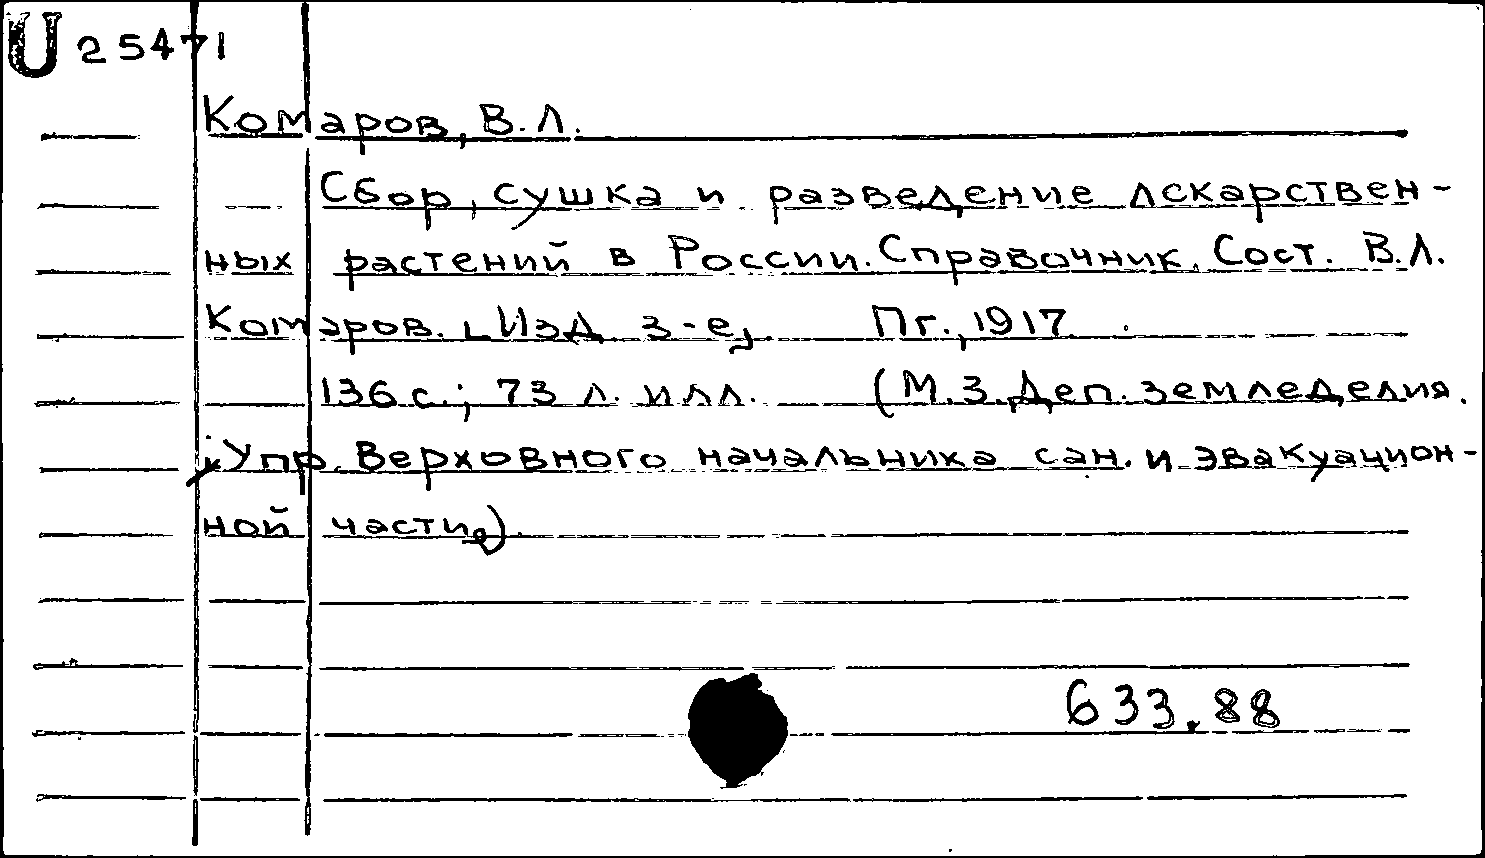 U 25471
Комаров, В.Л.
Сбор, сушка и разведение лекарствен-
ных растений в России. Справочник. Сост. В.Л.
Комаров. Изд 3-е, Пг., 1917
136 с.; 73 л. илл. (М.З. Деп. земледелия.
Упр. Верховного начальника сан. и эвакуацион-
ной части)
633.88